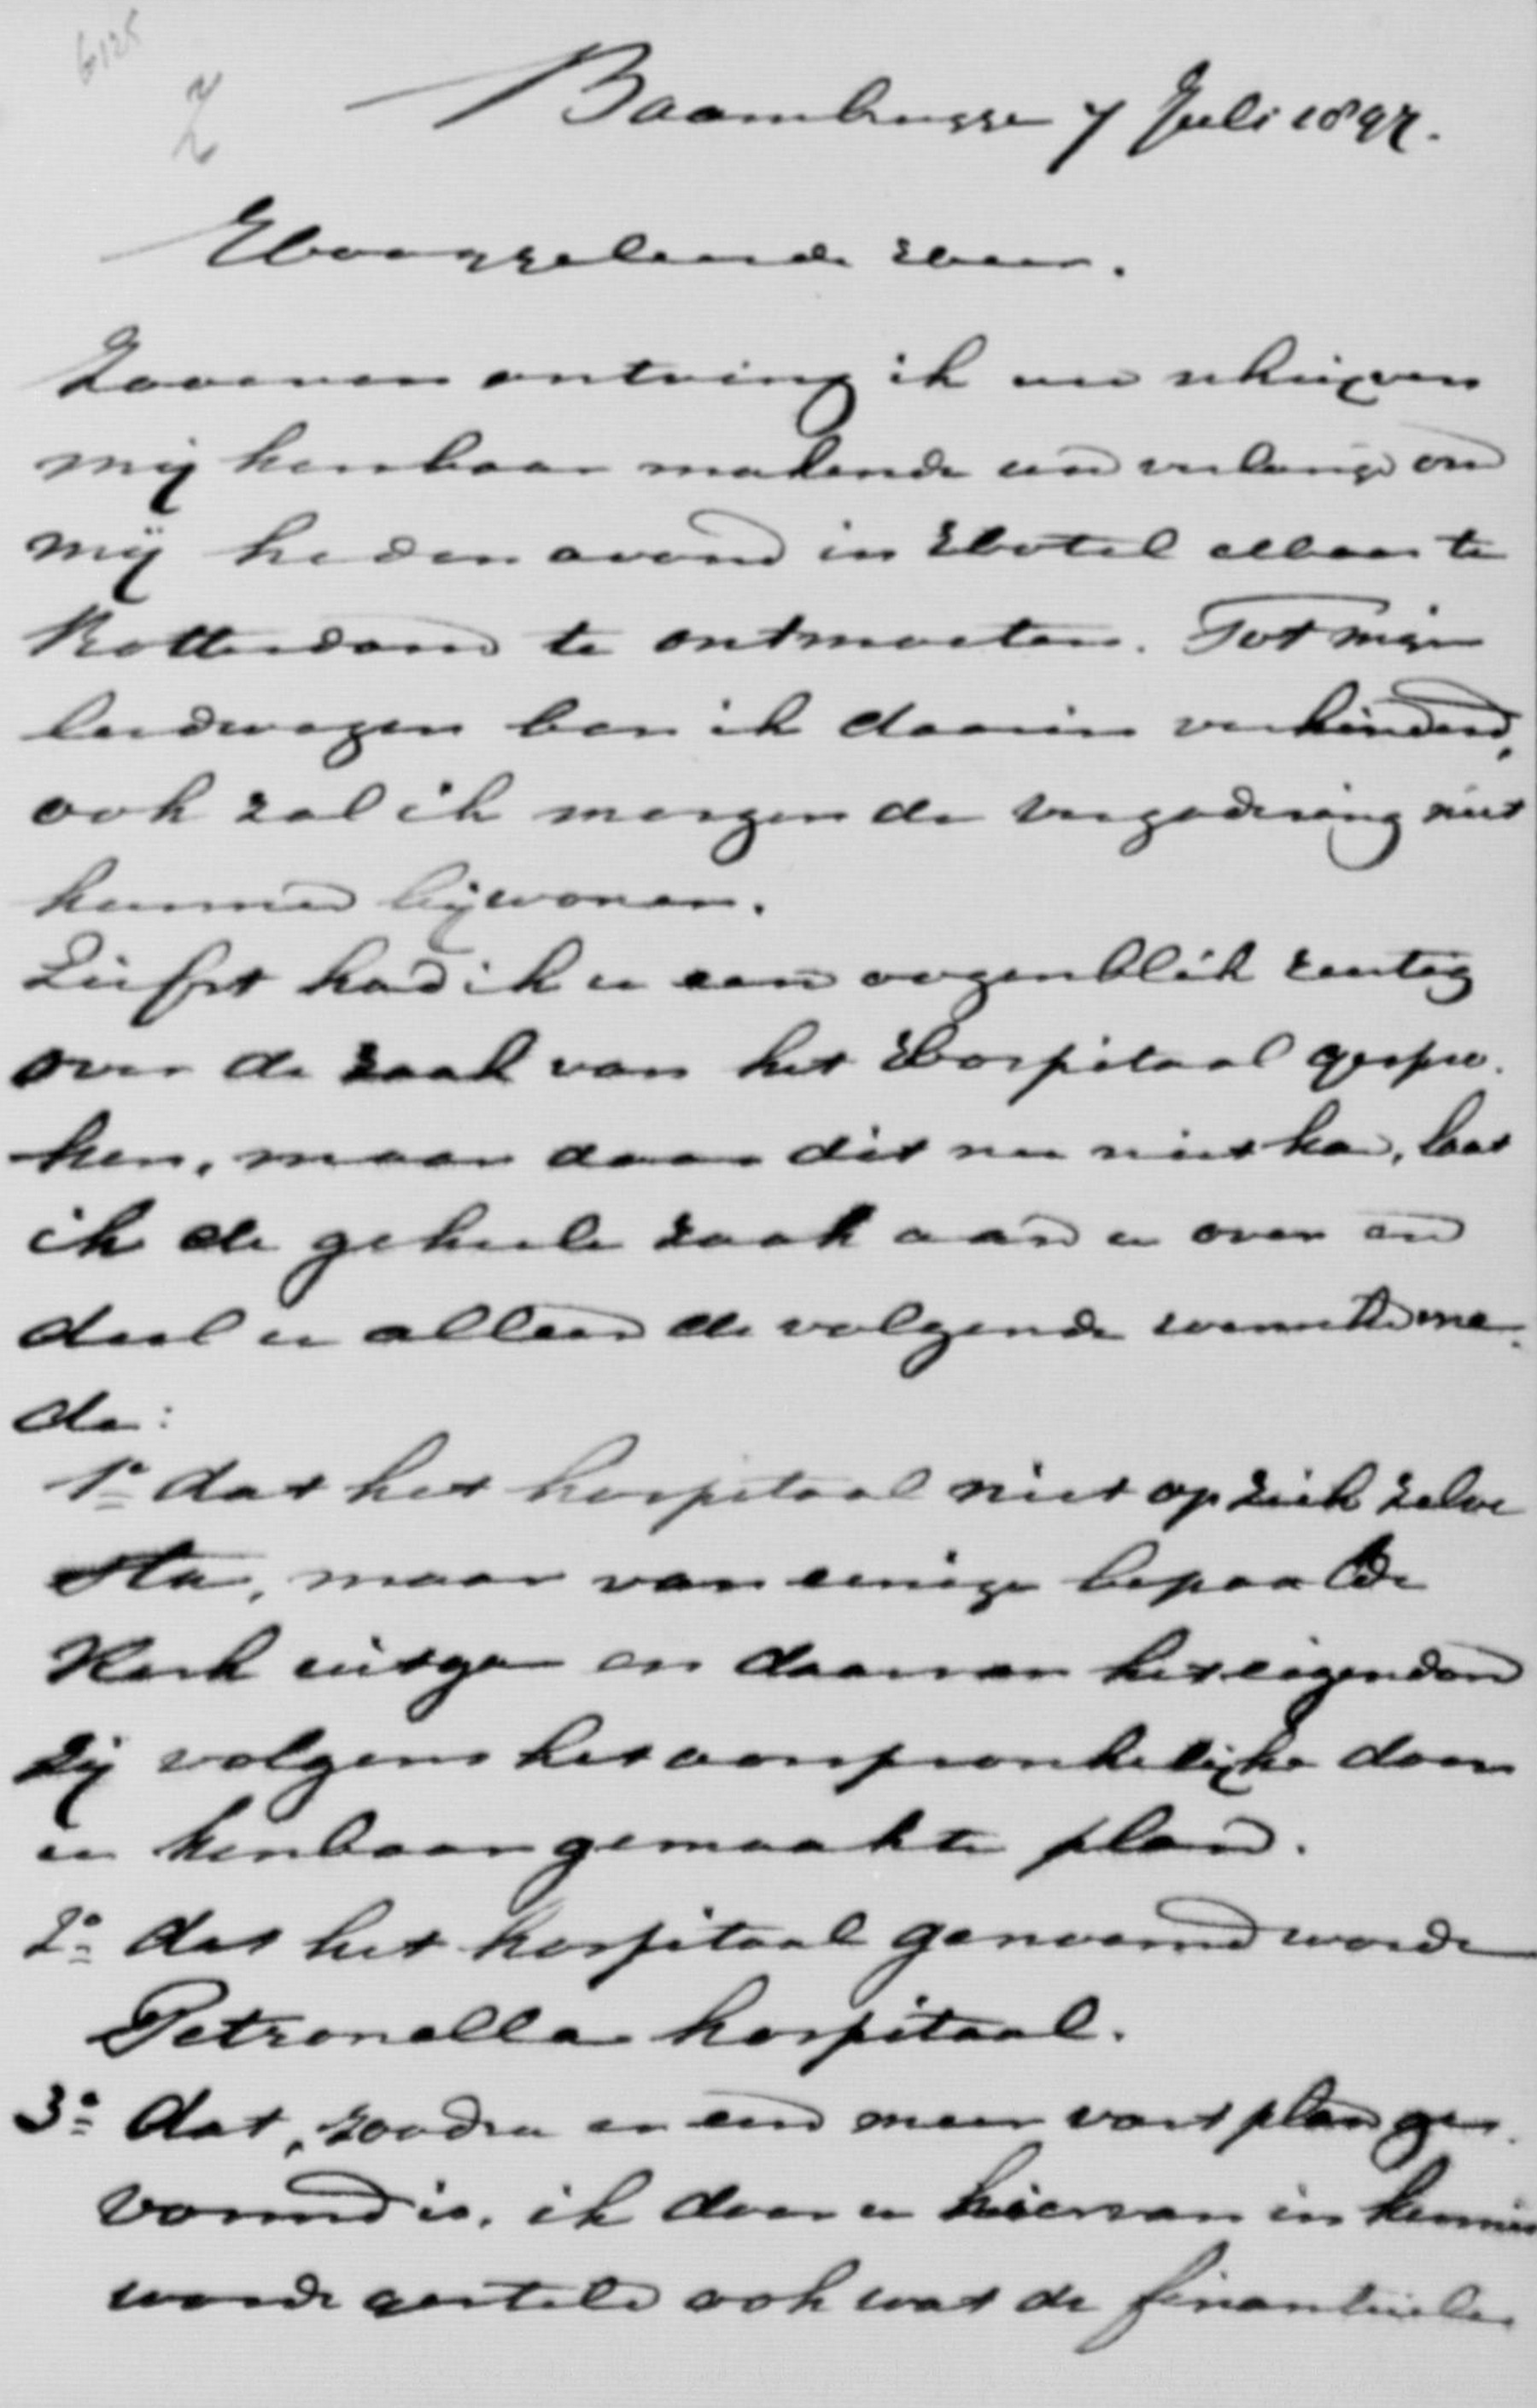 6125
Z
Baambrugge 7 Juli 1897.
Hooggeleerde Heer.
Zooeven ontving ik uw schrijven
mij kenbaar makende uw verlangen om
mij heden avond in Hotel Weimar te
Rotterdam te ontmoeten. Tot mijn
leedwezen ben ik daarin verhinderd,
ook zal ik morgen de vergadering niet
kunnen bijwonen.
Liefst had ik u een oogenblik rustig
over de zaak van het Hospitaal gespro-
ken, maar daar dit nu niet kan, laat
ik de geheele zaak aan u over en
deel u alleen de volgende wenschen me-
de:
1º dat het hospitaal niet op zich zelve
sta, maar van eenige bepaalde
Kerk uitga en daarvan het eigendom
zij volgens het oorspronkelijke door
u kenbaar gemaakte plan.
2º dat het hospitaal genaamd worde
Petronella hospitaal.
3º dat, zoodra er een meer vast plan ge-
vormd is, ik door u hiervan in kennis
worde gesteld ook wat de financieele